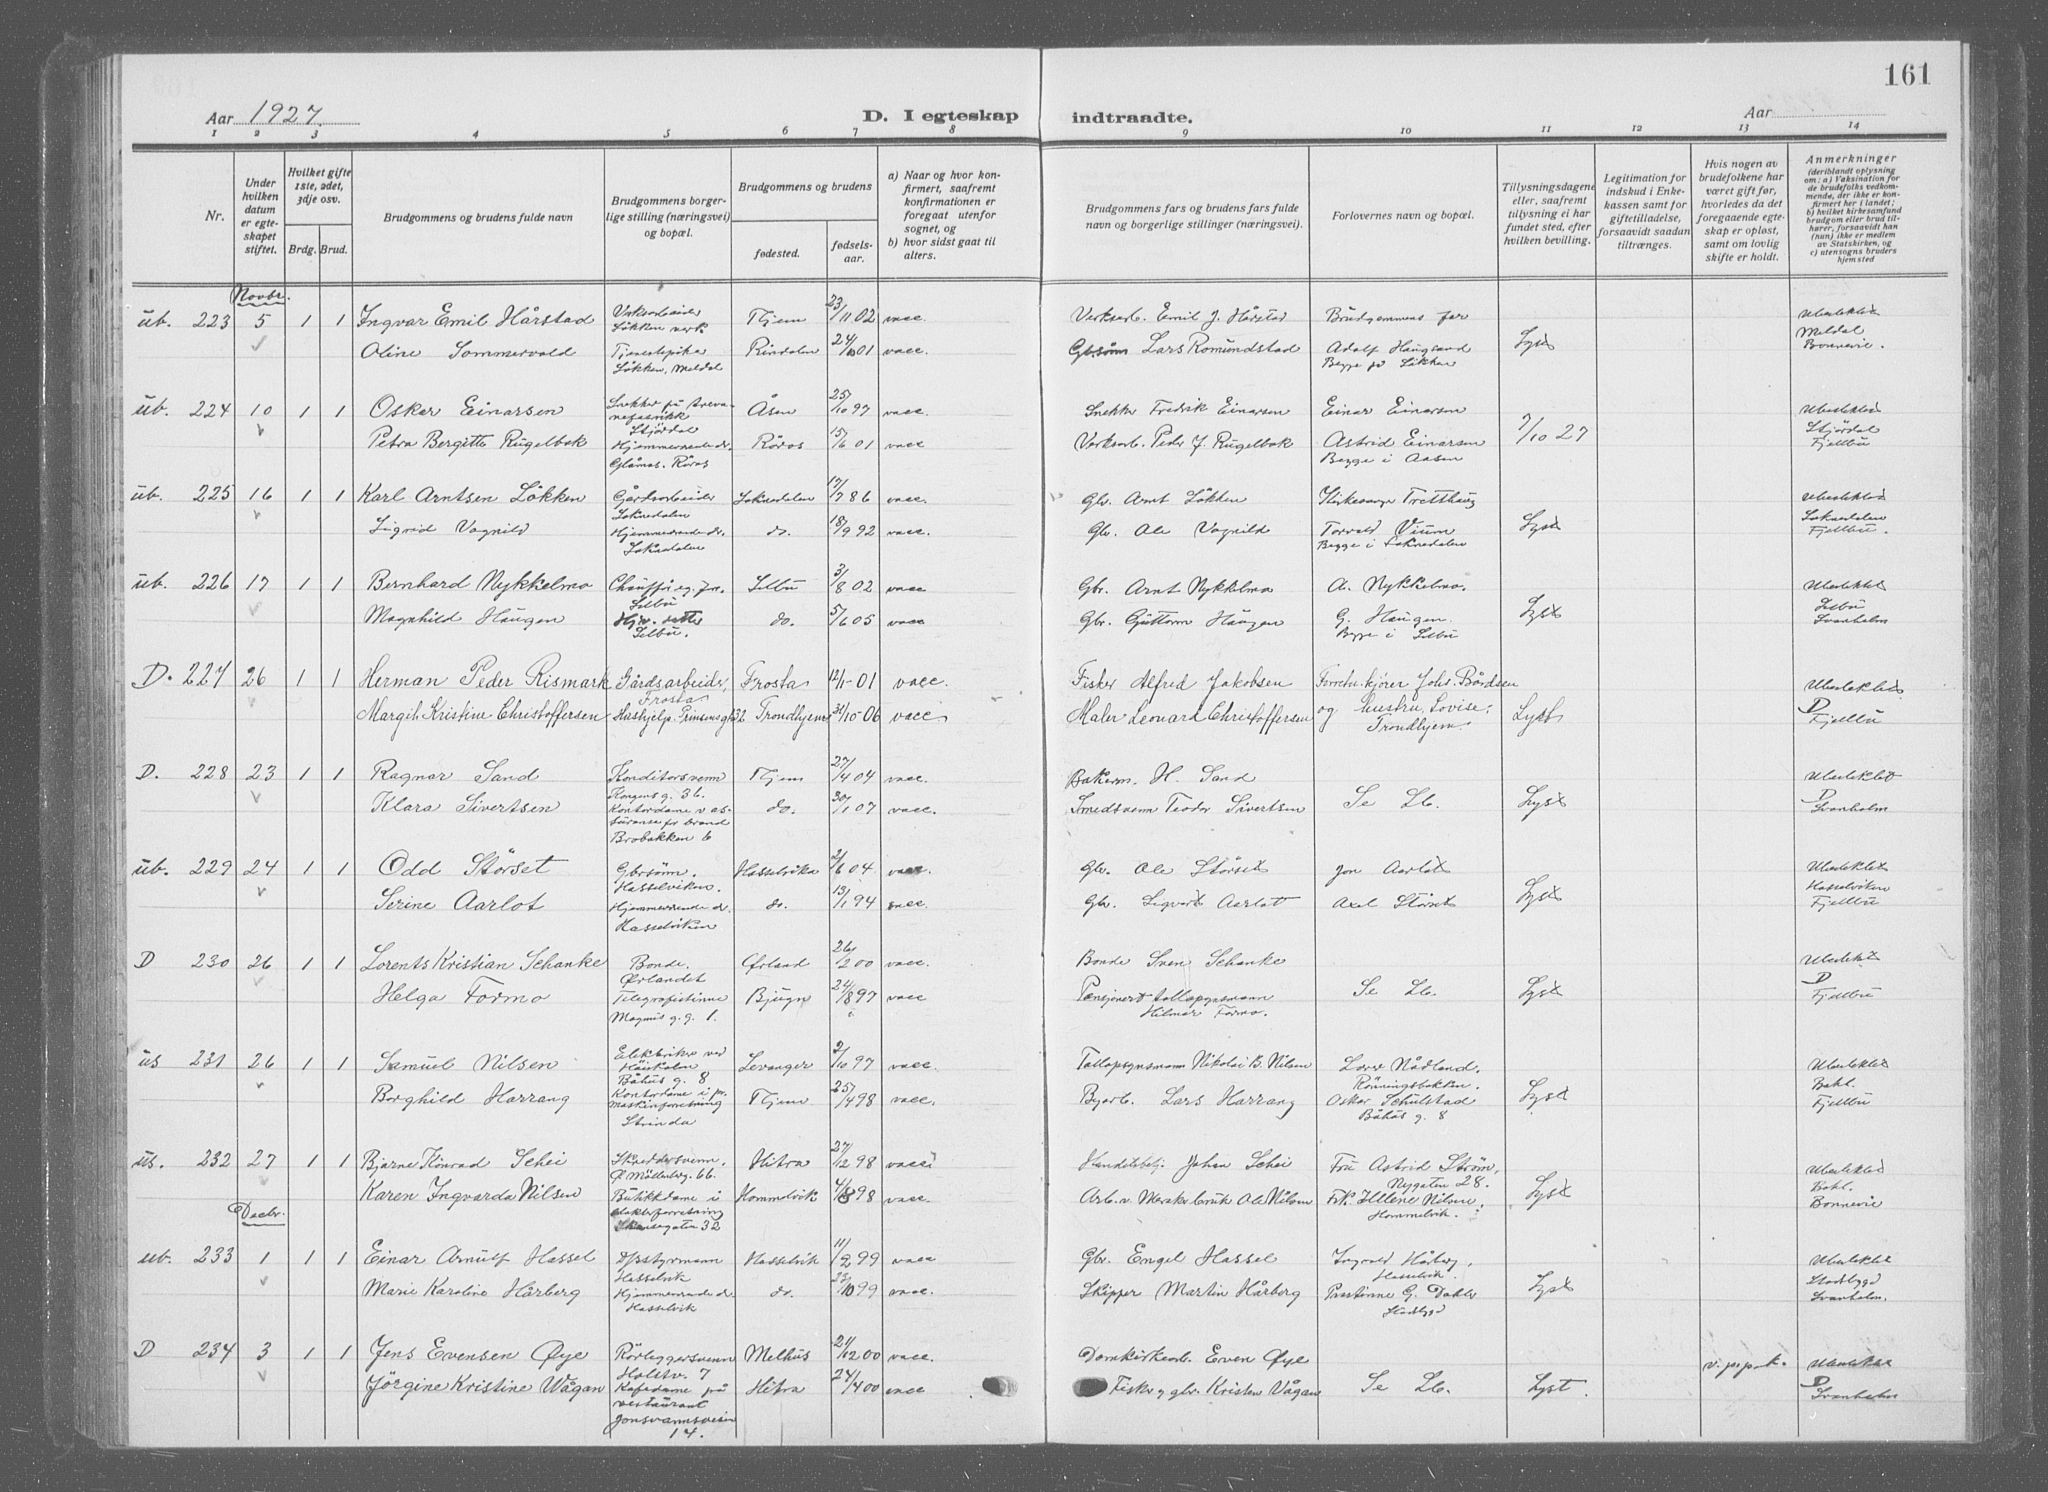 161
Aar 1927.
D. I egteskap indtraadte.
Aar
1 2 3 4 5 6 7 8 9 10 11 12 13 14
Nr.
Under hvilken datum er egteskapet stiftet.
Hvilket gifte 1ste, 2det, 3dje osv.
Brdg. Brud.
Brudgommens og brudens fulde navn
Brudgommens borgerlige stilling (næringsvei) og bopæl.
Brudgommens og brudens
fødested.
fødselsaar.
a) Naar og hvor konfirmert, saafremt konfirmationen er foregaat utenfor sognet, og
b) hvor sidst gaat til alters.
Brudgommens fars og brudens fars fulde navn og borgerlige stillinger (næringsvei).
Forlovernes navn og bopæl.
Tillysningsdagene eller, saafremt tillysning ei har fundet sted, efter hvilken bevilling.
Legitimation for indskud i Enkekassen samt for giftetilladelse, forsaavidt saadan tiltrænges.
Hvis nogen av brudefolkene har været gift før, hvorledes da det foregaaende egteskap er opløst, samt om lovlig skifte er holdt.
Anmerkninger
(deriblandt oplysning om: a) Vaksination for de brudefolks vedkommende, der ikke er konfirmert her i landet; b) hvilket kirkesamfund brudgom eller brud tilhører, forsaavidt han (hun) ikke er medlem av Statskirken, og c) utensogns bruders hjemsted
Novbr.
ub. 223 5 1 1 Ingvar Emil Hårstad Verksarbeider Thjem 23/11 02 vacc. Verksarb. Emil J. Hårstad Brudgommens far Uberliktet
Løkken verk Meldal
Oline Sommervold Tjenestepike Rindalen 24/10 01 vacc. Gbsønn Lars Romundstad Adolf Haugland Lyst Bonnevie.
Løkken, Meldal Begge på Løkken
ub. 224 10 1 1 Osker Einarsen Snekker på Åsen 25/10 97 vacc. Snekker Fredrik Einarsen Einar Einarsen
Stjørdal Stjørdal
Petra Bergitte Rugelbak Hjemmerende dr. Røros 15/6 01 vacc Verksarb. Peder J. Rugelbak Astrid Einarsen 7/10 27 Fjellbu
Glåmos. Røros Begge i Aasen
ub. 225 16 1 1 Karl Arntsen Løkken Gårdsarbeider Soknedalen 17/7 86 vacc. Gbr. Arnt Løkken Tretthaug
Soknedalen Soknedalen
Sigrid Vagnild Hjemmerende dr. do. 18/9 92 vacc. Gbr. Ole Vagnild Torvald Vium Lyst Fjellbu.
Soknedalen Begge i Soknedalen
ub. 226 17 1 1 Bernhard Nykkelmo Selbu 3/8 02 vacc Gbr. Arnt Nykkelmo A. Nykkelmo.
Selbu Selbu
Magnhild Haugen do. 5/6 05 vacc Gbr. Guttorm Haugen G. Haugen. Lyst Svanholm
Selbu. Begge i Selbu
D. 227 26 1 1 Herman Peder Rismark Gårdsarbeider, Frosta 12/1-01 vacc. Fisker Alfred Jakobsen Forretn.kjører Johs. Bårdsen
Frosta D
Margit Kristine Christoffersen Hushjelp. Prinsensgt 32 Trondhjem 31/10-06 vacc Maler Leonard Christoffersen og hustru Lovise. Lyst Fjellbu
Trondhjem.
D. 228 23 1 1 Ragnar Sand Konditorsvenn Thjem 27/4 04 vacc. Bakerm. H. Sand
Kongens g. 36. D
Klara Sivertsen Kontordame v as- do. 30/1 07 vacc. Smedsvenn Teodor Sivertsen Se Lb. Lyst Svanholm
suranse for brand
Brobakken 6
ub. 229 24 1 1 Odd Størset Gbrsønn. Hasselvika 2/6 04 vacc. Gbr. Ole Størset Jon Aarlot
Hasselviken. Hasselviken
Serine Aarlot Hjemmerende dr. do. 13/1 94 vacc. Gbr. Sigvart Aarlot Axel Størset Lyst Fjellbu
Hasselviken
D 230 26 1 1 Lorents Kristian Schanke Bonde. Ørland 26/2 00 vacc. Bonde Sven Schanke
Ørlandet D
Helga Formo Telegrafistinne Bjugn 24/8 97 vacc Pensjonert tollopsynsmann Se Lb. Lyst Fjellbu
Magnus g. g. 1. Hilmar Formo.
us 231 26 1 1 Samuel Nilsen Elektriker ved Levanger 2/10 97 vacc. Tollopsynsmann Nikolai B. Nilsen Nådland.
Høiskolen Rønningsbakken. Bakl.
Båhus g. 8
Borghild Harrang Kontordame i Thjem 25/4 98 vacc. Byarb. Lars Harrang Oskar Schulstad Lyst Fjellbu
maskinforretning Båhus g. 8
Strinda
us. 232 27 1 1 Bjarne Konrad Schei Skreddersvenn, Hitra 27/12 98 vacc Handelsbetj. Johan Schei Fru Astrid Strøm,
Ø Møllenberg. 66. Nygaten 28. Bakl.
Karen Ingvarda Nilsen Butikkdame i Hommelvik 4/8 98 vacc. Arb. v. Meraker bruk Ole Nilsen Frk. Helene Nilsen, Lyst Bonnevie
Hommelvik.
32
Decbr.
ub. 233 1 1 1 Einar Arnulf Hassel Hasselvik 11/2 99 vacc Gbr. Engel Hassel Ingvald Hårberg,
Hasselvik Hasselvik. Stadsbygd
Marie Karoline Hårberg Hjemmerende dr. do. 23/10 99 vacc. Skipper Martin Hårberg Prestinne G. Dahle Lyst Svanholm.
Hasselvik Stadsbygd
D 234 3 1 1 Jens Evensen Øye Rørleggersvenn Melhus 21/12 00 vacc. Domkirkearb. Even Øye v. p. p. k.
Holstv. 7 D
Jørgine Kristine Wågan Kafedame på Hitra 24/4 00 vacc Fisker og gbr. Kristen Vågan Se Lb. Lyst. Svanholm
restaurant
Jonsvannsveien
14.